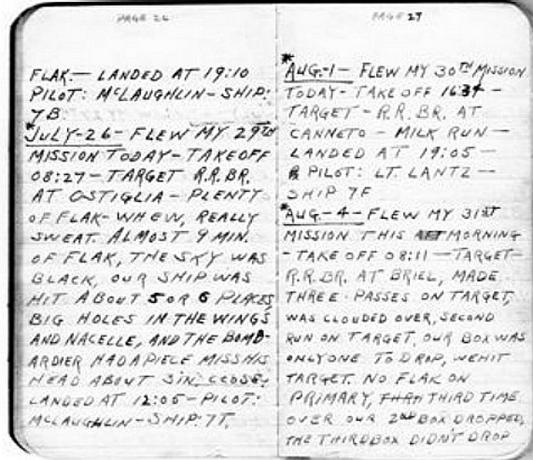 PAGE 26
FLAK.— LANDED AT 19:10
PILOT: McLAUGHLIN - SHIP:
7B
*JULY-26- FLEW MY 29TH
MISSION TODAY - TAKEOFF
08:27 - TARGET R.R.BR.
AT OSTIGLIA - PLENTY
OF FLAK - WHEW, REALLY
SWEAT. ALMOST 9 MIN.
OF FLAK, THE SKY WAS
BLACK, OUR SHIP WAS
HIT ABOUT 5 OR 6 PLACES,
BIG HOLES IN THE WINGS
AND NACELLE, AND THE BOMB-
ARDIER HAD A PIECE MISS HIS
HEAD ABOUT 3IN. CLOSE.
LANDED AT 12:05 - PILOT:
McLAUGHLIN - SHIP: 7T.
PAGE 27
*AUG.-1- FLEW MY 30TH MISSION
TODAY - TAKE OFF 1634 -
TARGET - R.R. BR. AT
CANNETO - MILK RUN -
LANDED AT 19:05 -
PILOT: LT. LANTZ -
SHIP 7F
*AUG.-4- FLEW MY 31ST
MISSION THIS MORNING
- TAKE OFF 08:11 - TARGET -
R.R. BR. AT BRIEL, MADE
THREE PASSES ON TARGET,
WAS CLOUDED OVER, SECOND
RUN ON TARGET, OUR BOX WAS
ONLY ONE TO DROP, WE HIT
TARGET. NO FLAK ON
PRIMARY, THIRD TIME
OVER OUR 2ND BOX DROPPED,
THE THIRD BOX DIDN'T DROP